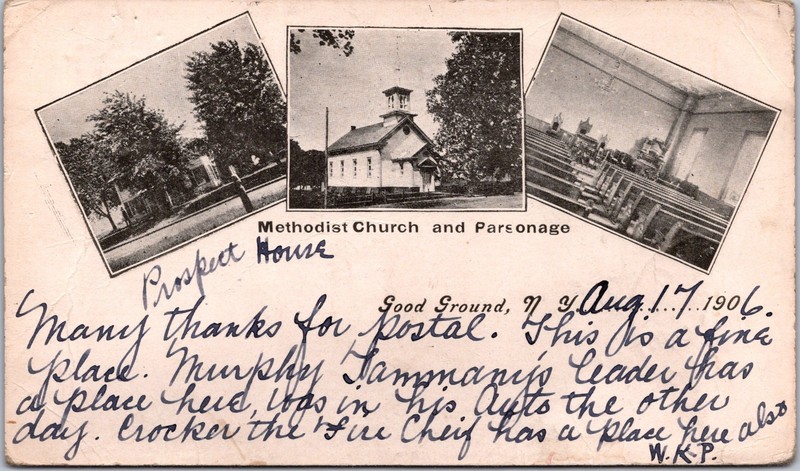 Methodist Church and Parsonage
Prospect House
Good Ground, N. Y. Aug. 17 1906.
Many thanks for postal. This is a fine
place. Murphy Tammany's leader has
a place here, was in his Auto the other
day. Crocker the Fire Cheif has a place here also
W.K.P.